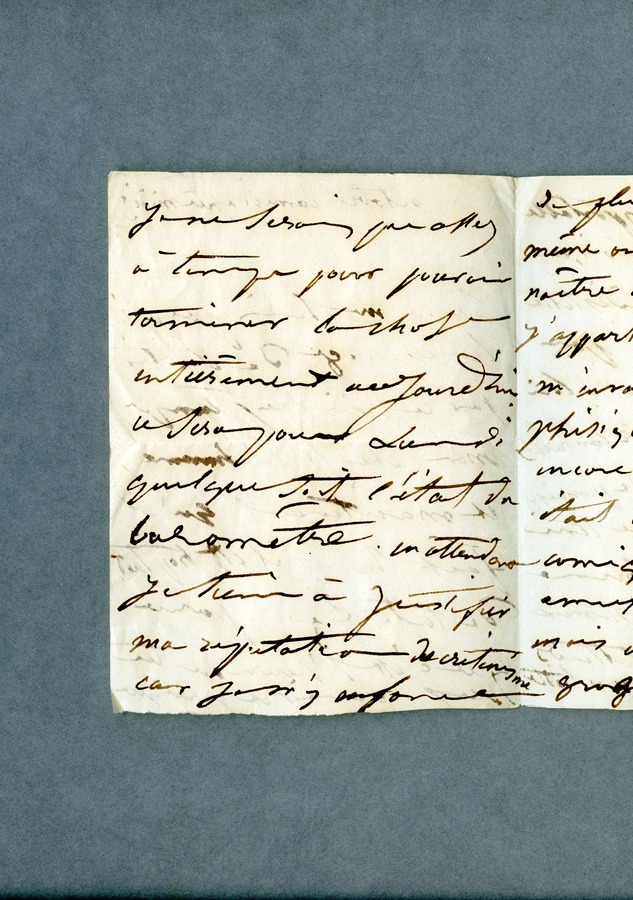 Je ne serai pas assez
à temps pour pouvoir
terminer la chose
entièrement aujourd'hui
ce sera pour Lundi
quelque soit l'état du
baromètre. en attendant
je tiens à justifier
ma réputation de crétinisme
car je m'y enfonce
de plu
même ou
naître
j'appart
m'inva
phisiq
encore
était
comiq
mais